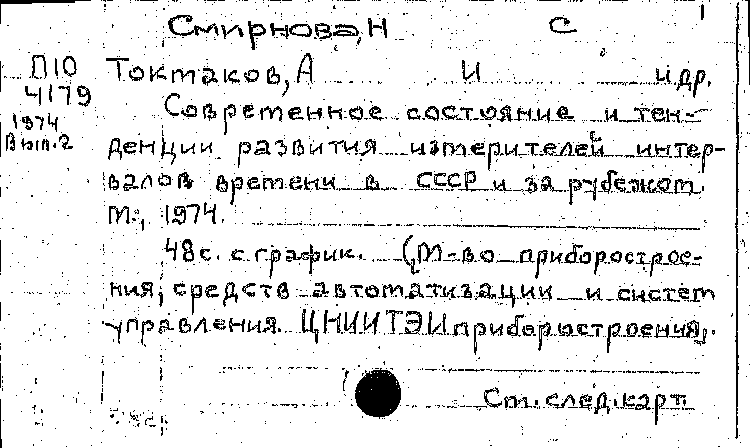 Смирнова, Н С
П10 Токмаков, А И и др.
4179
Современное состояние и тен-
1974
Вып.2 денции развития измерителей интер-
валов времени в СССР и за рубежом.
М., 1974.
48с. с график. (М-во приборострое-
ния, средств автоматизации и систем
управления. ЦНИИТЭИприборостроения,.
Ст. след. карт.